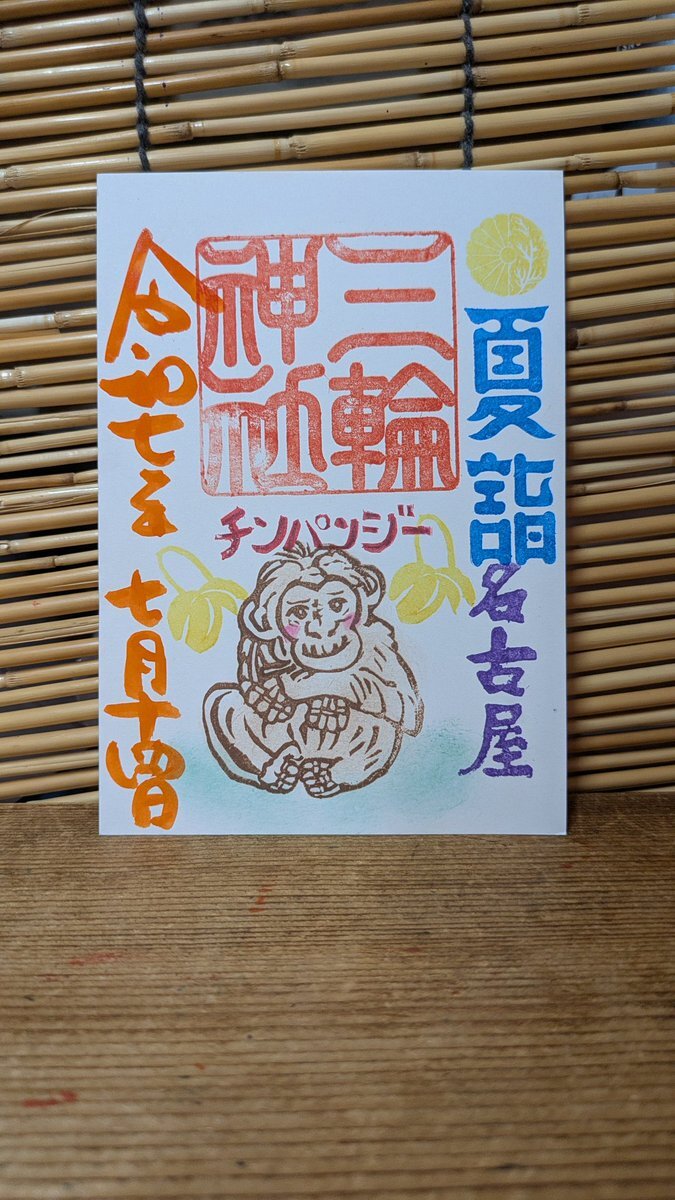 夏詣
名古屋
三輪
神社
チンパンジー
令和七年 七月十四日